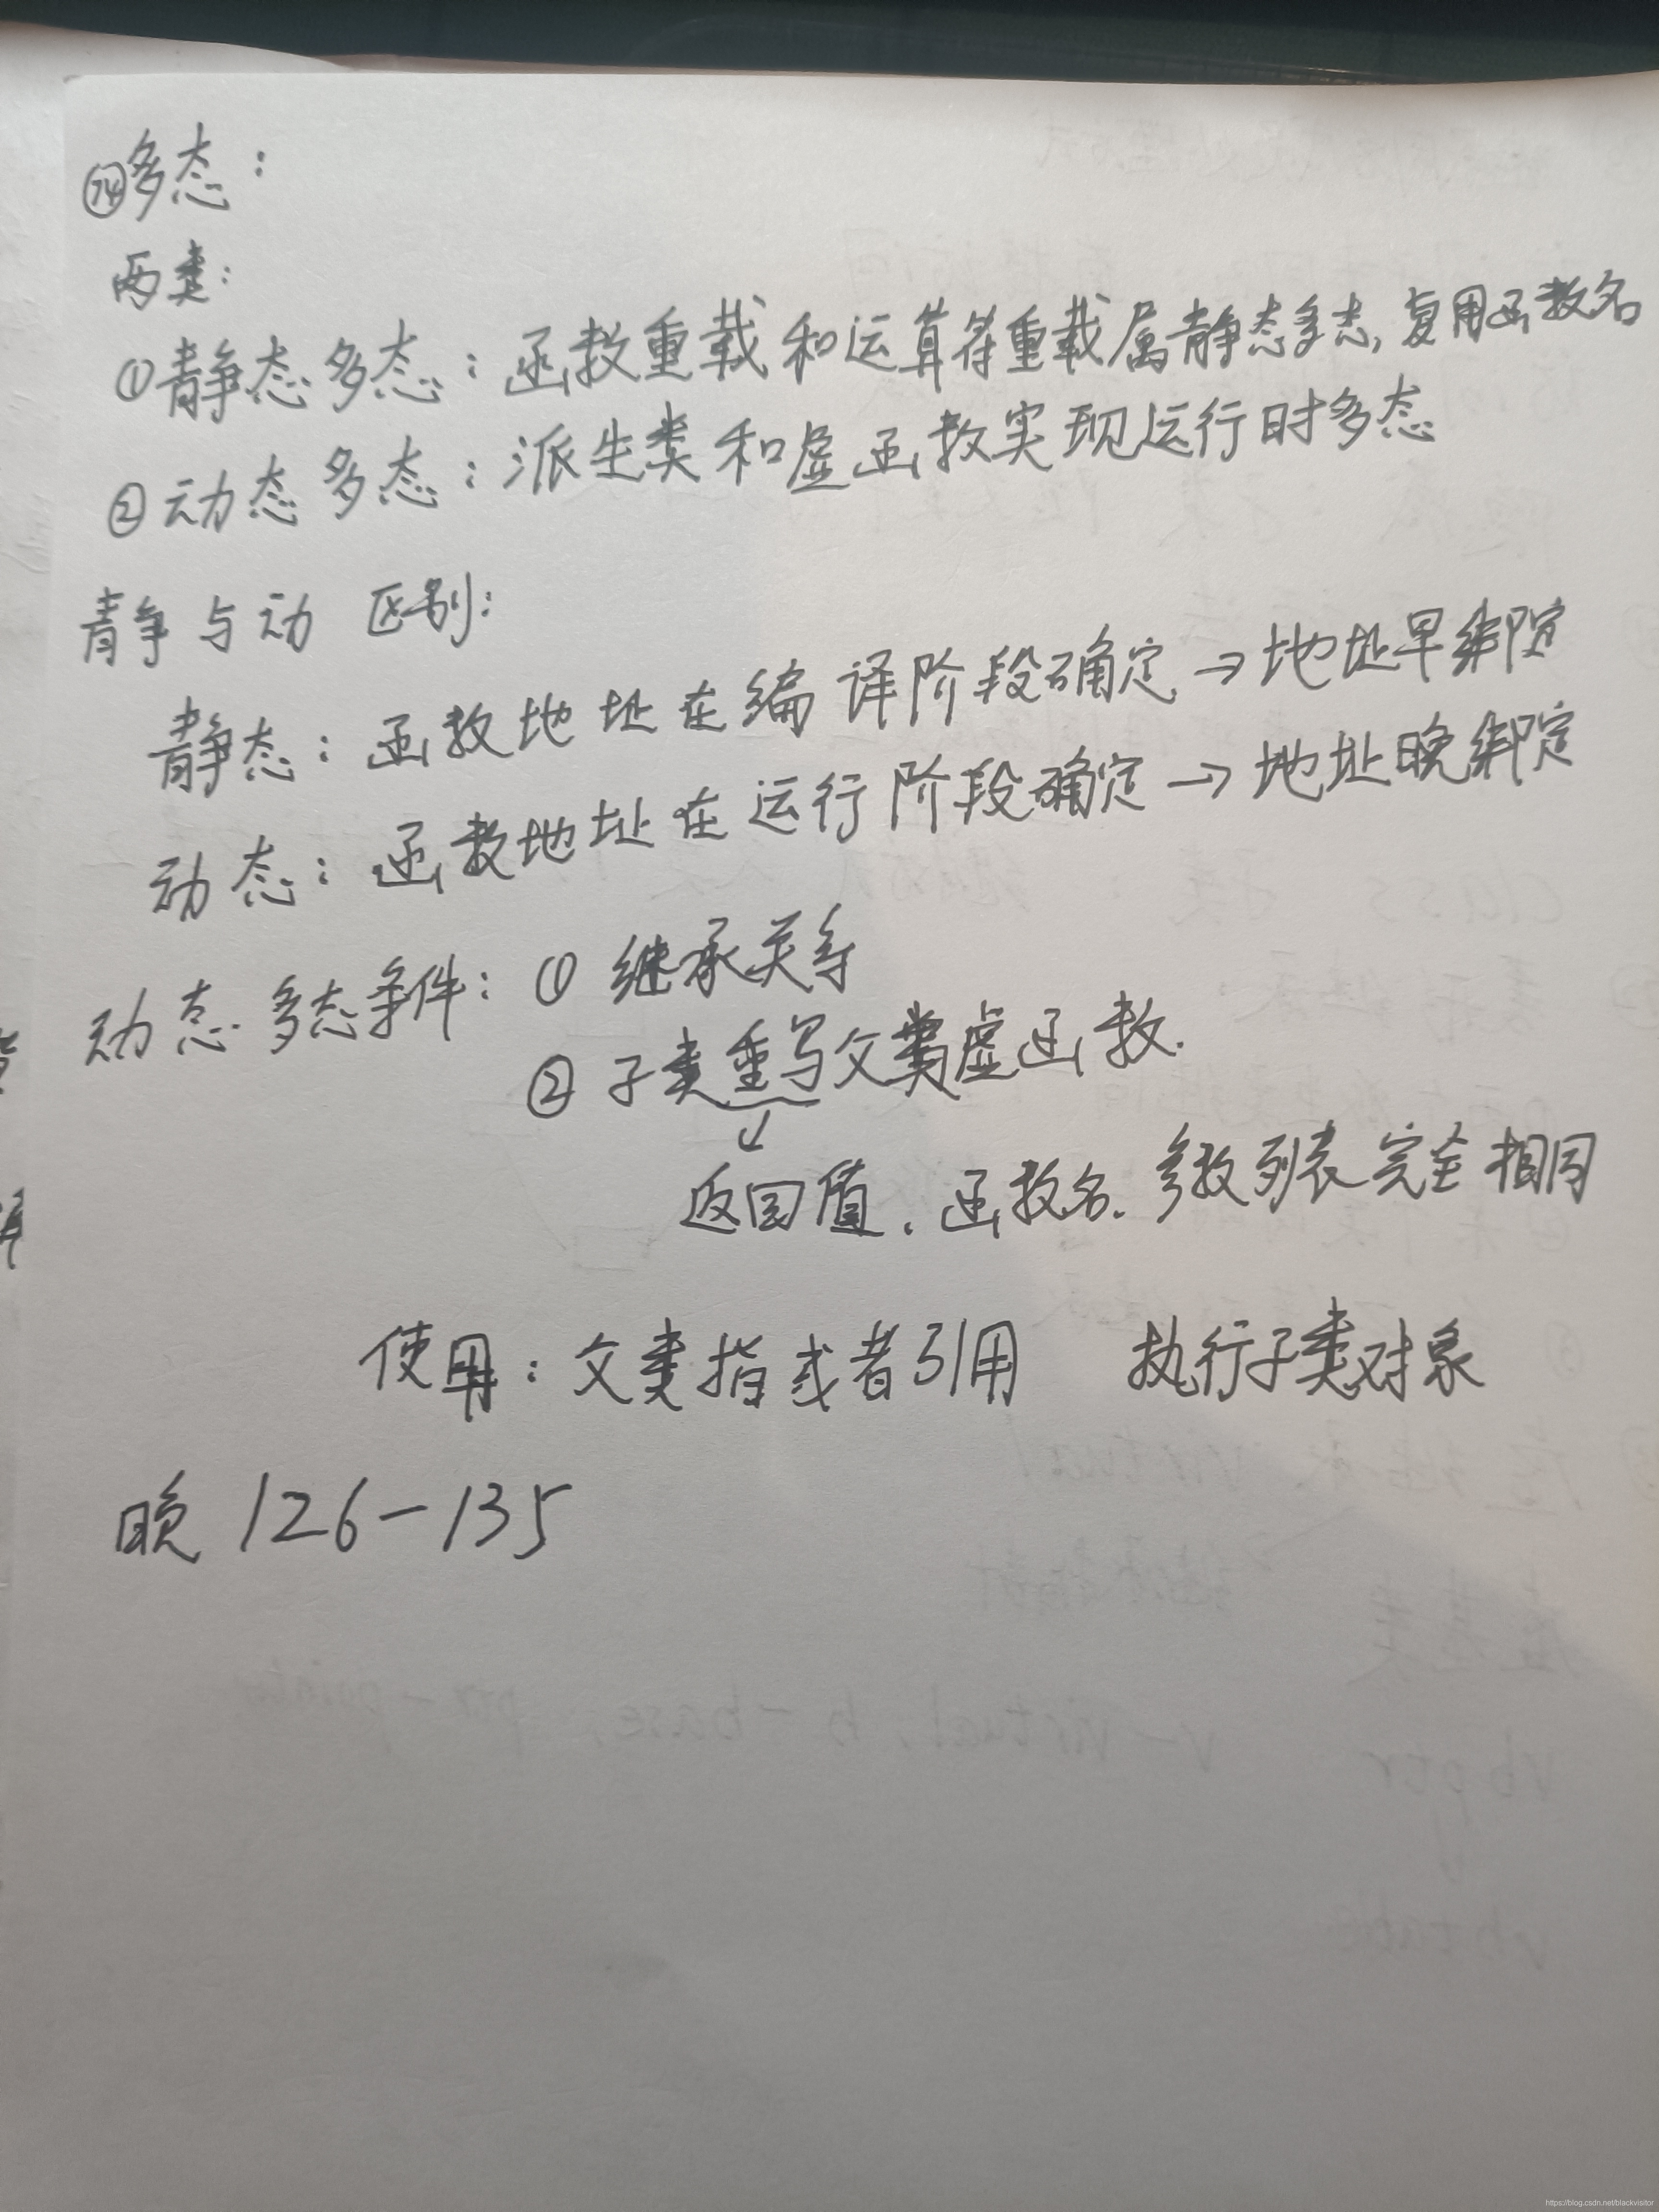 ㉔多态：
两类：
①静态多态：函数重载和运算符重载属静态多态，复用函数名
②动态多态：派生类和虚函数实现运行时多态
静与动 区别：
静态：函数地址在编译阶段确定→地址早绑定
动态：函数地址在运行阶段确定→地址晚绑定
动态多态条件：① 继承关系
② 子类重写父类虚函数.
返回值、函数名、参数列表完全相同
使用：父类指或者引用 执行子类对象
晚 126-135
https://blog.csdn.net/blackvisitor